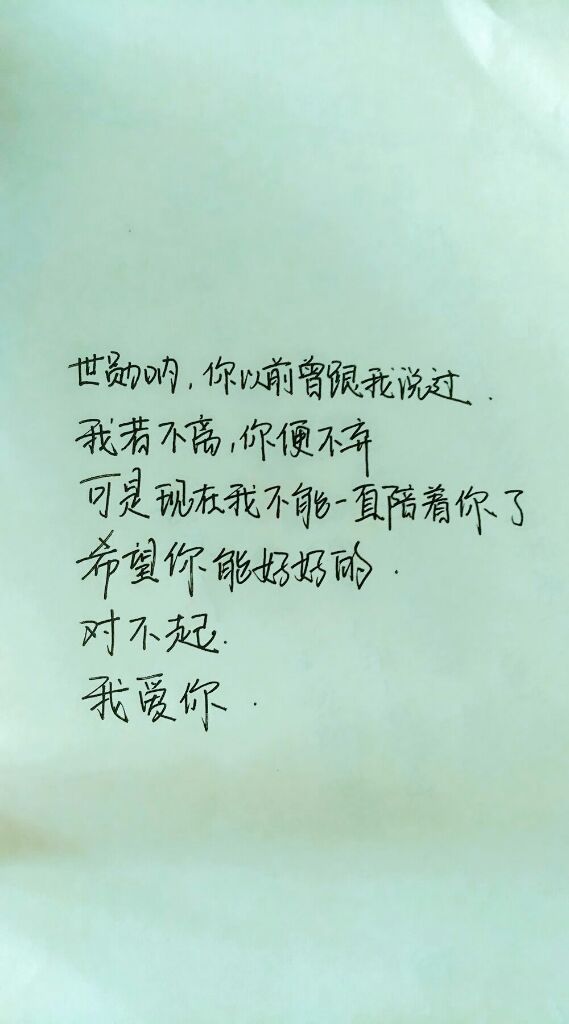 世勋呐，你以前曾跟我说过.
我若不离，你便不弃
可是现在我不能一直陪着你了
希望你能好好的.
对不起.
我爱你.